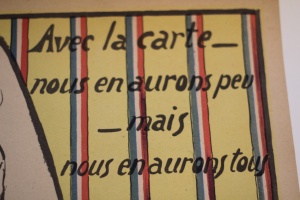 Avec la carte_
nous en aurons peu
_ mais
nous en aurons tous